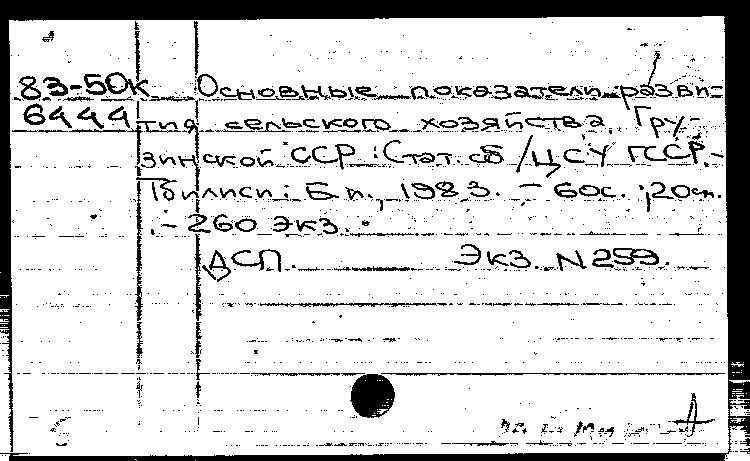 83-50к Основные показатели разви-
6444 тия сельского хозяйства Гру-
зинской ССР : Стат. сб / ЦСУ ГССР. -
Тбилиси : Б. и., 1983. - 60с. ; 20см.
. - 260 экз. .
ДСП. Экз. N 259.